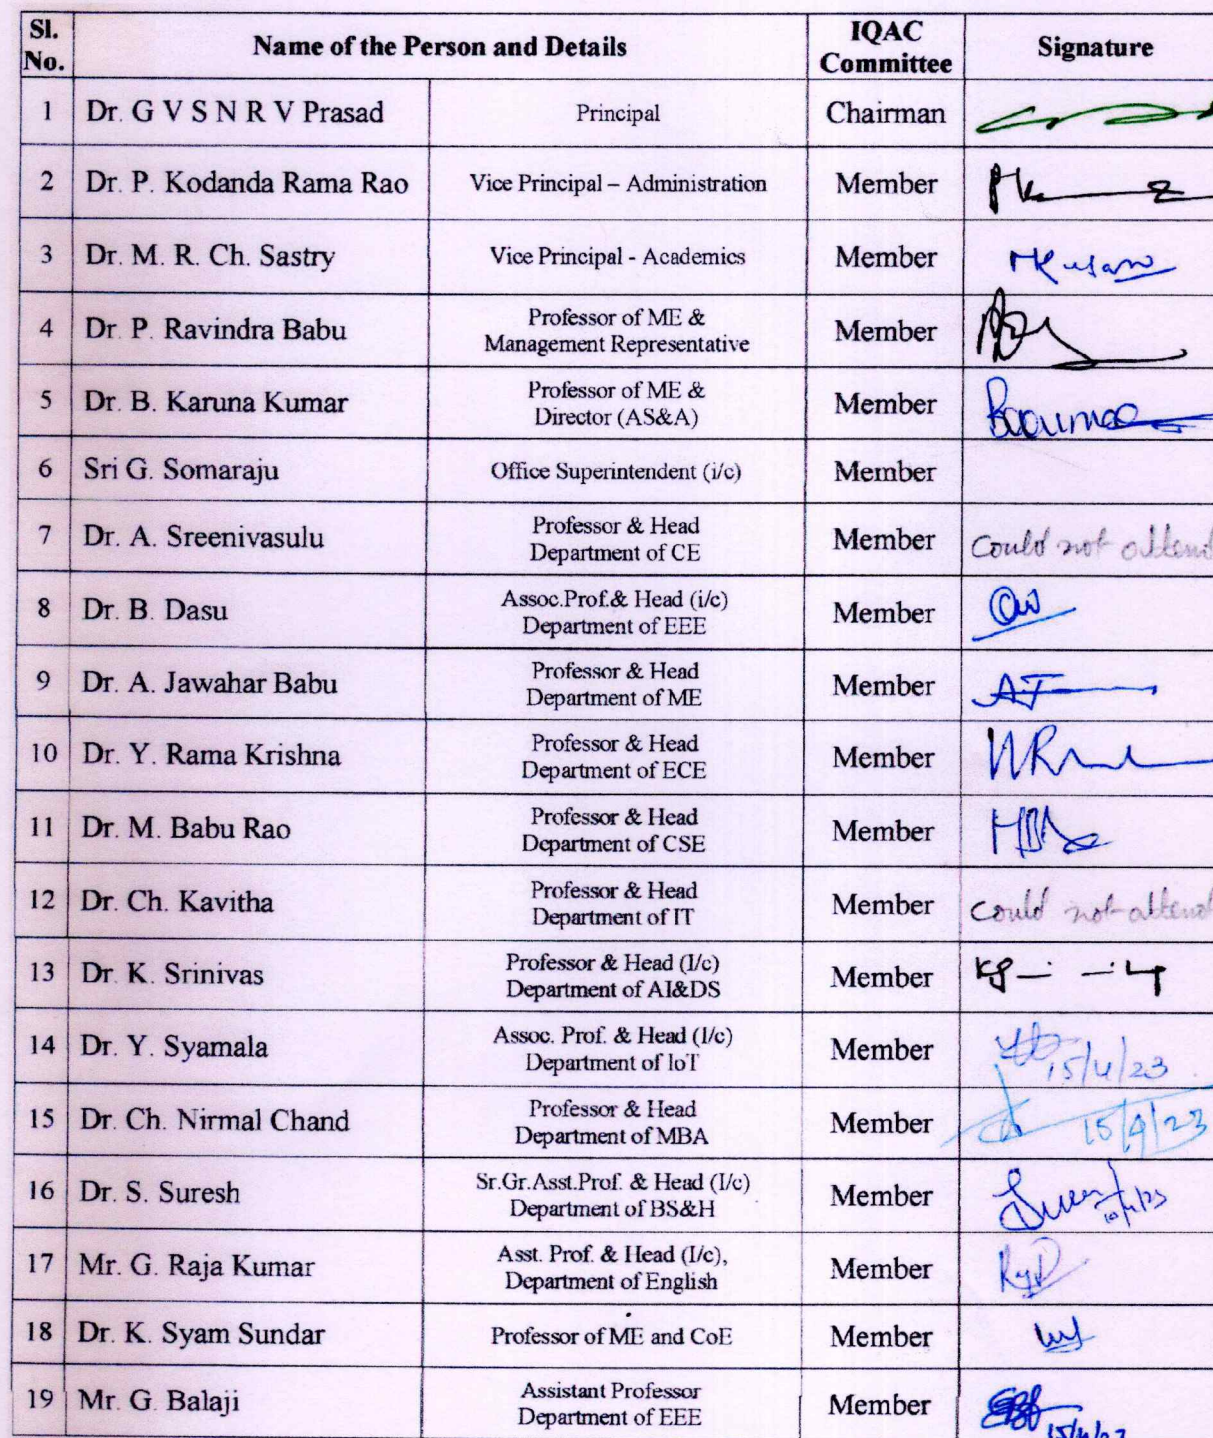 Sl. No. Name of the Person and Details IQAC Committee Signature
1 Dr. G V S N R V Prasad Principal Chairman
2 Dr. P. Kodanda Rama Rao Vice Principal – Administration Member
3 Dr. M. R. Ch. Sastry Vice Principal - Academics Member
4 Dr. P. Ravindra Babu Professor of ME & Management Representative Member
5 Dr. B. Karuna Kumar Professor of ME & Director (AS&A) Member
6 Sri G. Somaraju Office Superintendent (i/c) Member
7 Dr. A. Sreenivasulu Professor & Head Department of CE Member Could not attend
8 Dr. B. Dasu Assoc.Prof.& Head (i/c) Department of EEE Member
9 Dr. A. Jawahar Babu Professor & Head Department of ME Member
10 Dr. Y. Rama Krishna Professor & Head Department of ECE Member
11 Dr. M. Babu Rao Professor & Head Department of CSE Member
12 Dr. Ch. Kavitha Professor & Head Department of IT Member Could not attend
13 Dr. K. Srinivas Professor & Head (I/c) Department of AI&DS Member
14 Dr. Y. Syamala Assoc. Prof. & Head (I/c) Department of IoT Member 15/4/23
15 Dr. Ch. Nirmal Chand Professor & Head Department of MBA Member 15/4/23
16 Dr. S. Suresh Sr.Gr.Asst.Prof. & Head (I/c) Department of BS&H Member
17 Mr. G. Raja Kumar Asst. Prof. & Head (I/c), Department of English Member
18 Dr. K. Syam Sundar Professor of ME and CoE Member
19 Mr. G. Balaji Assistant Professor Department of EEE Member